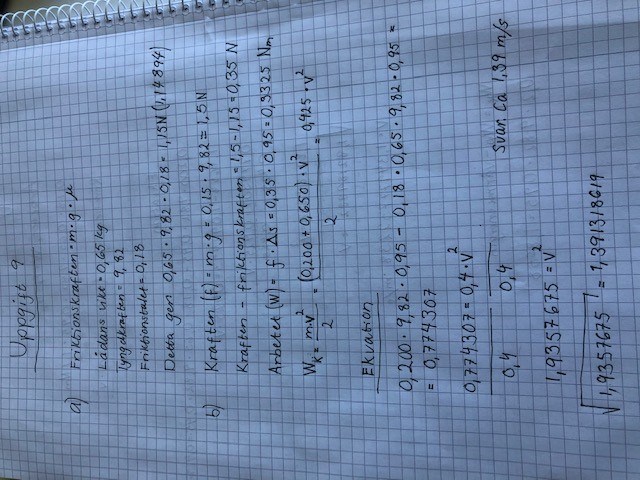 Uppgift 9
a) Friktionskraften = m · g · μ
Lådans vikt = 0,65 kg
Tyngdkraften = 9,82
Friktionstalet = 0,18
Detta ger 0,65 · 9,82 · 0,18 = 1,15 N (1,14894)
b) Kraften (F) = m · g = 0,15 · 9,82 = 1,5 N
Kraften - friktionskraften = 1,5 - 1,15 = 0,35 N
Arbetet (W) = f · Δs = 0,35 · 0,95 = 0,3325 Nm
W_K = mv²/2 = (0,200 + 0,650) · v²/2 = 0,425 · v²
Ekvation
0,200 · 9,82 · 0,95 - 0,18 · 0,65 · 9,82 · 0,95 =
= 0,774307
0,774307/0,4 = 0,4 · v²/0,4
1,9357675 = v²
√1,9357675 = 1,391318619
Svar: Ca 1,39 m/s